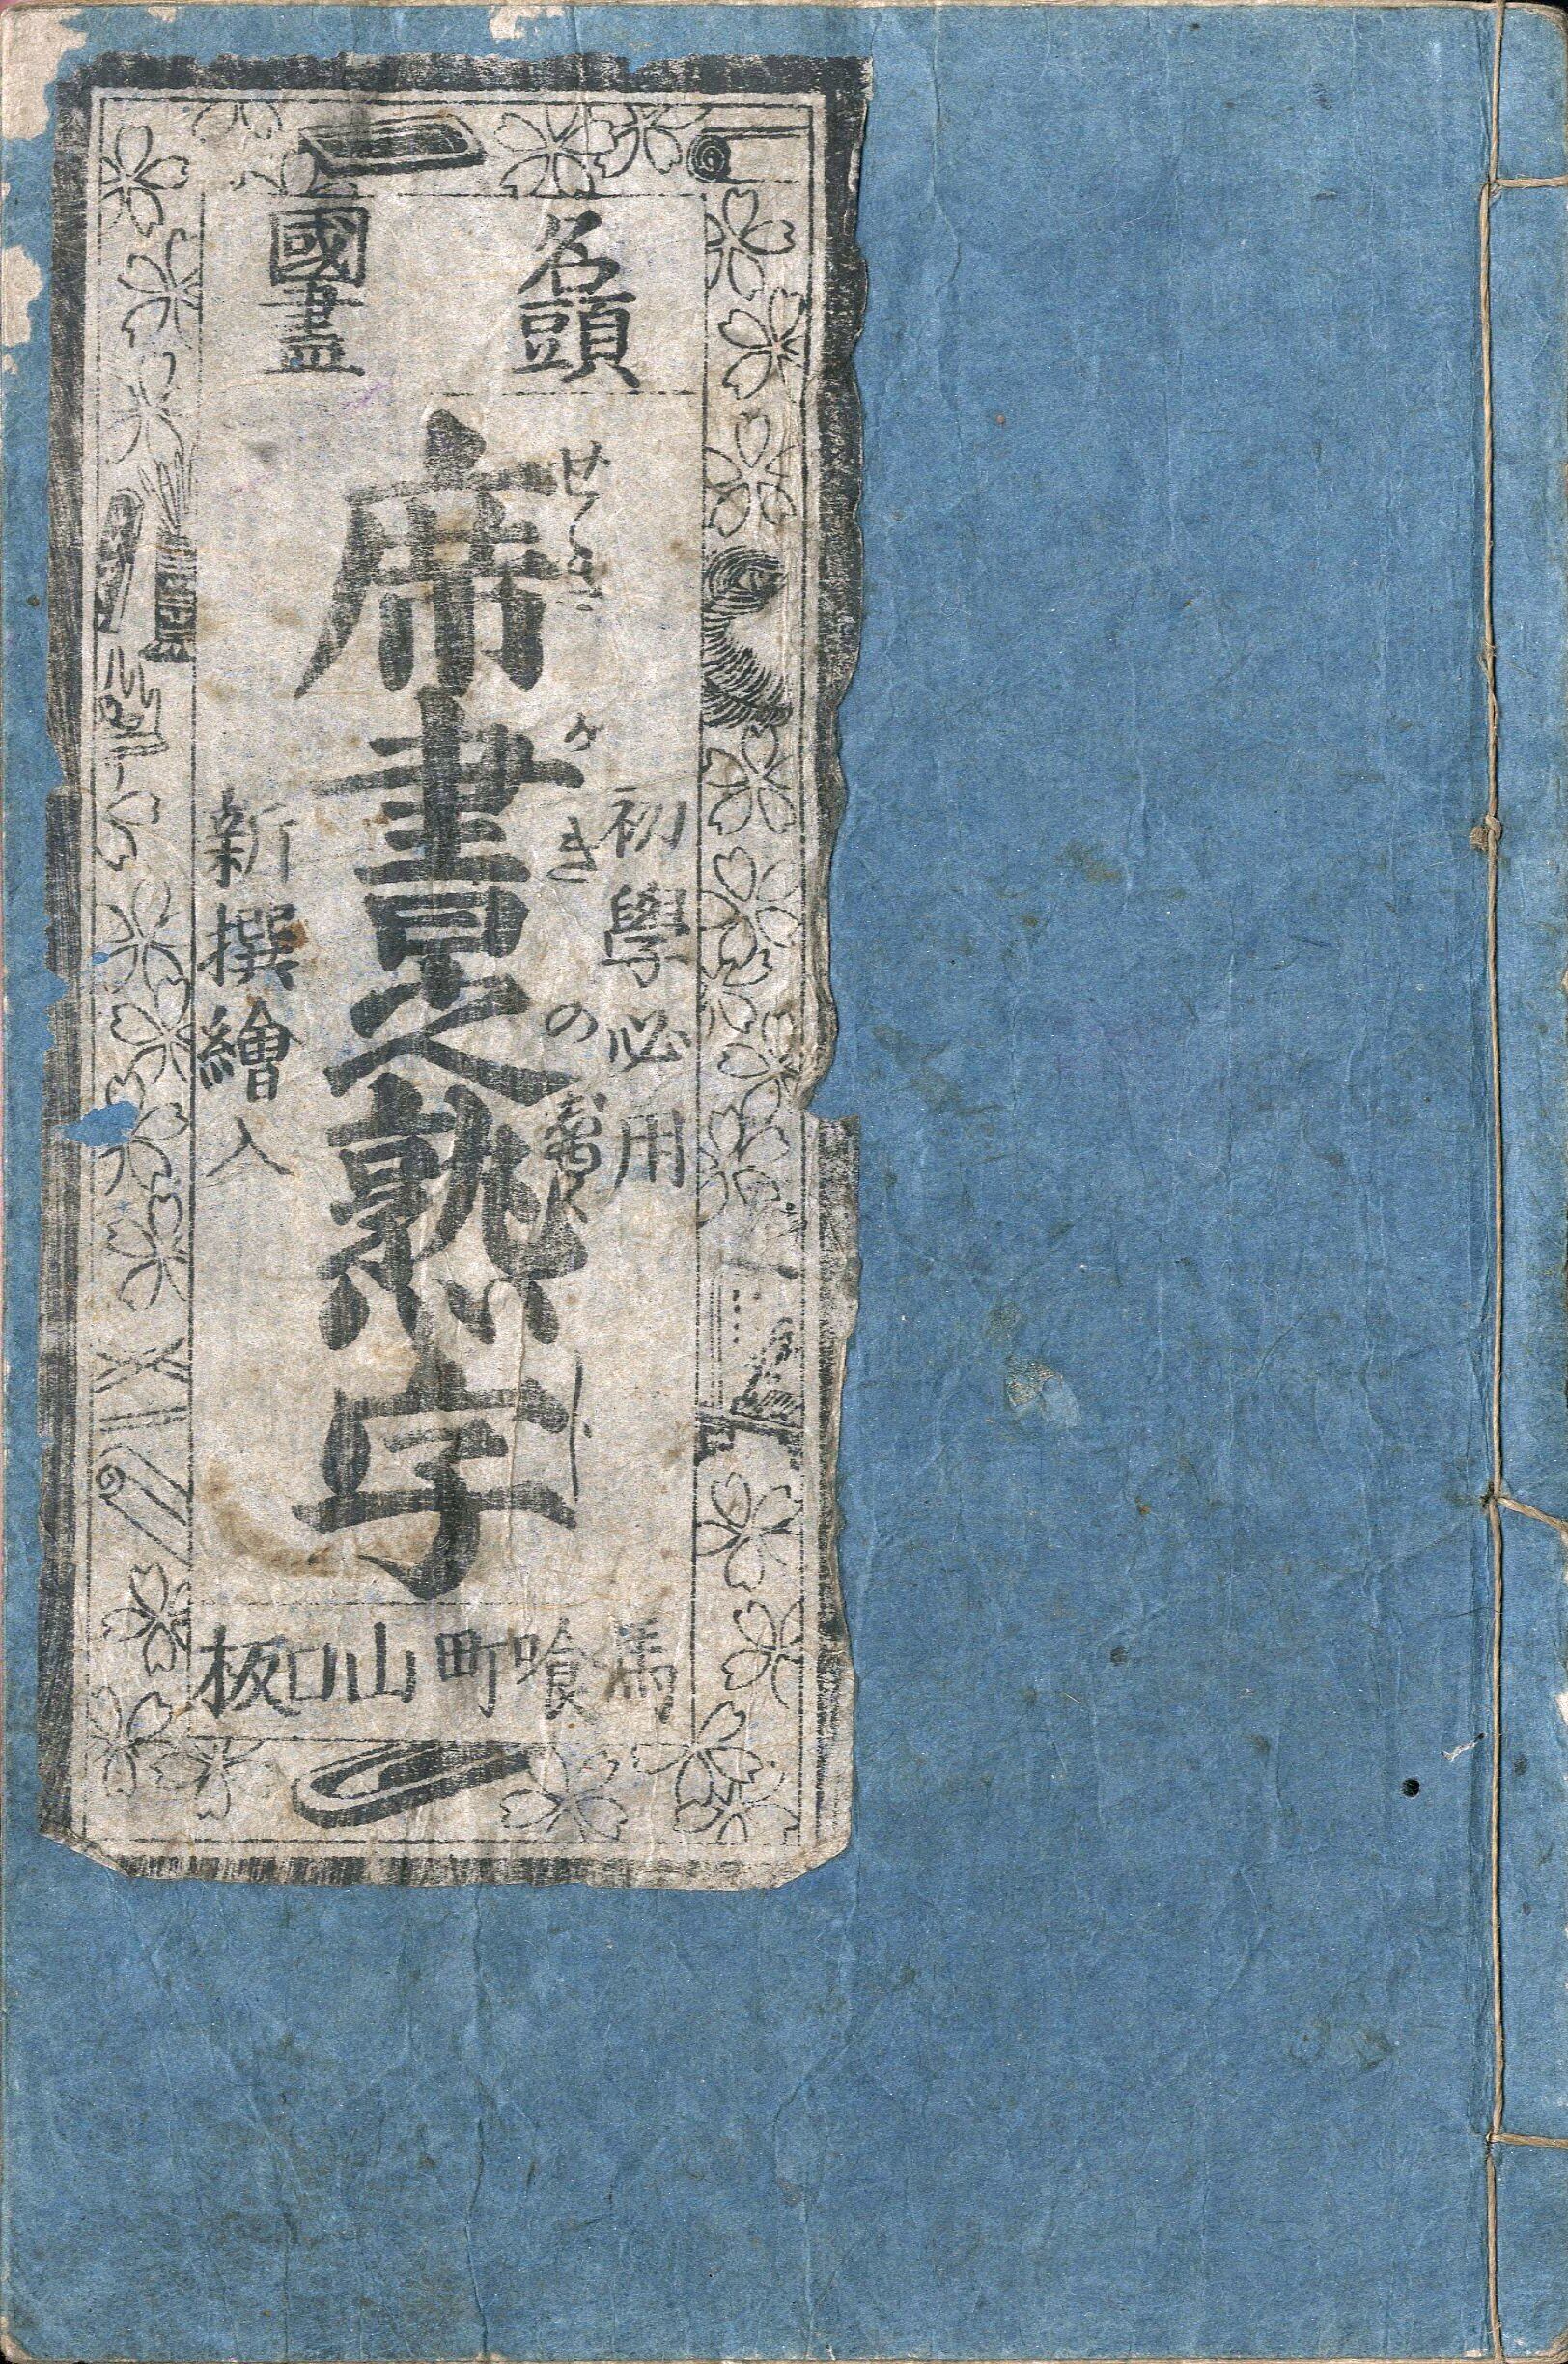 名頭
國盡
初學必用
せきがきのじゆくじ
席書之熟字
新撰繪入
馬喰町山口板